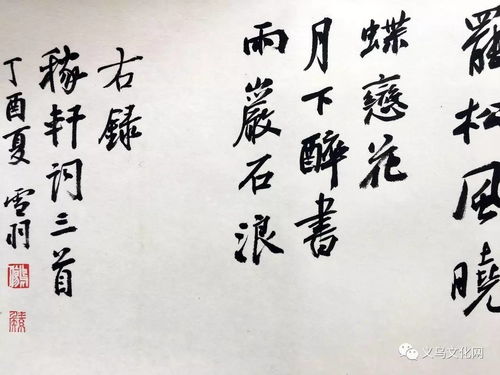 罷松風曉
蝶戀花
月下醉書
雨巖石浪
右錄
稼軒詞三首
丁酉夏 雪羽
义乌文化网